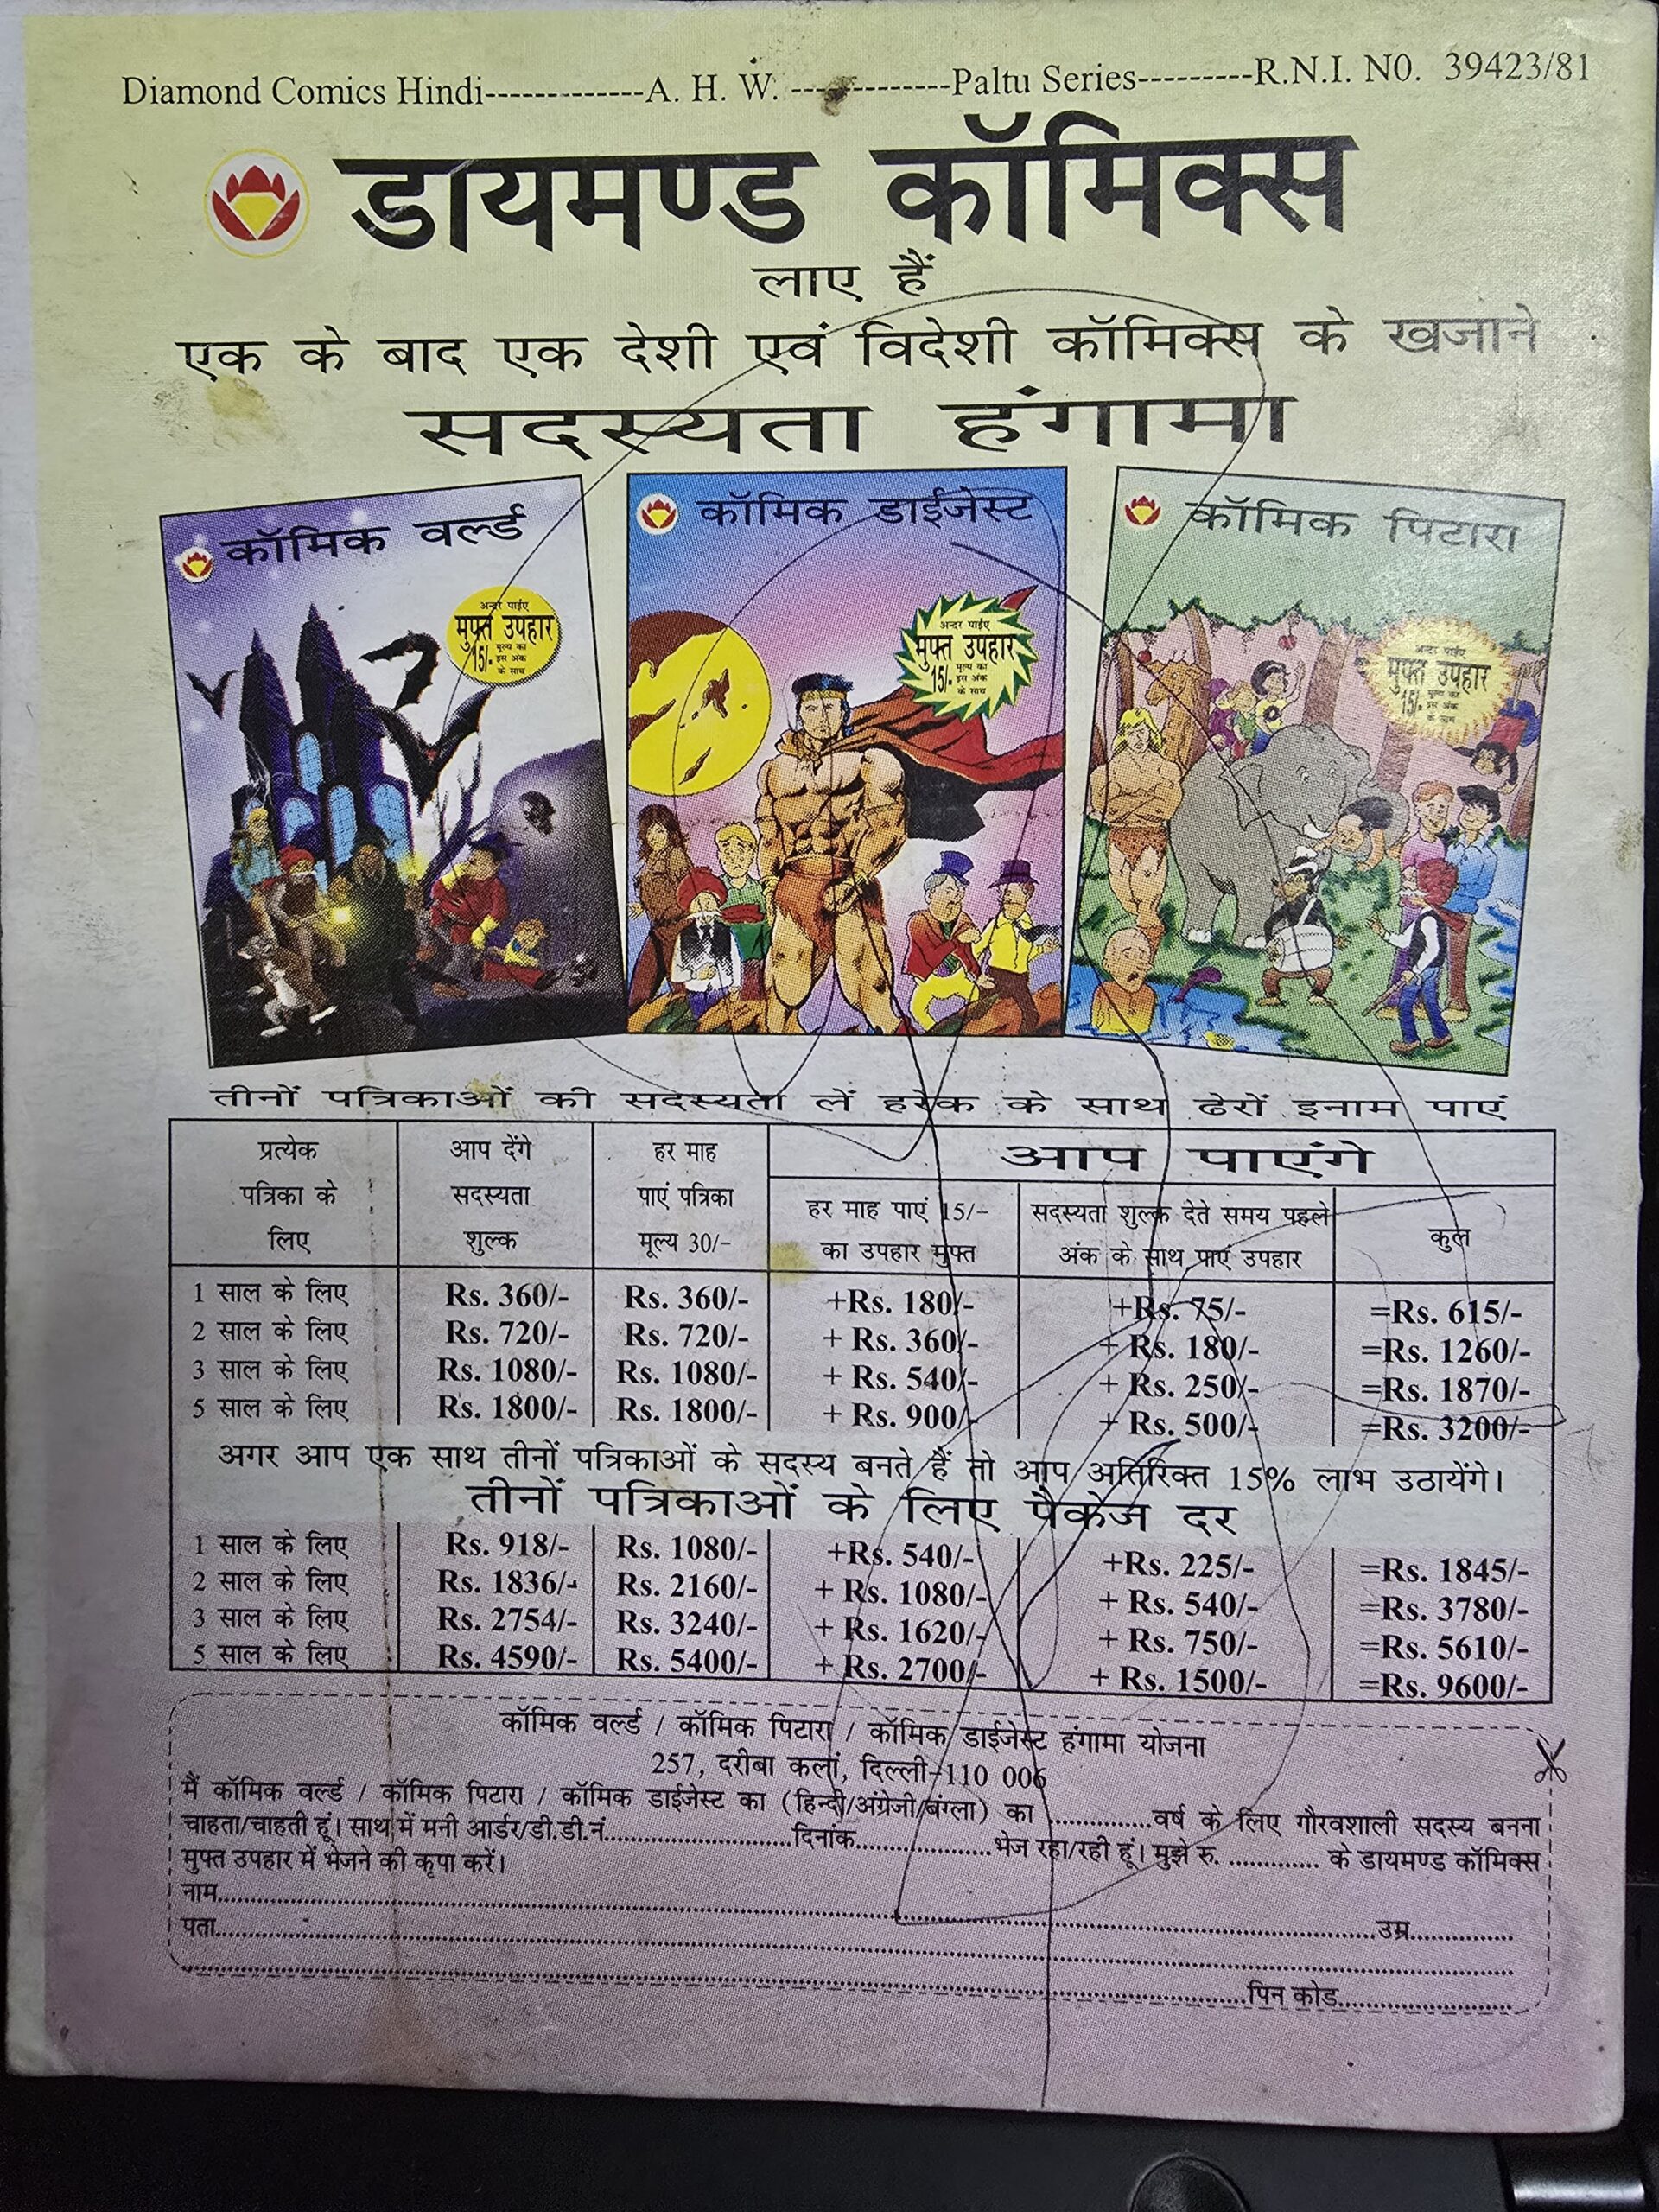 Diamond Comics Hindi-------------A. H. W. -------------Paltu Series---------R.N.I. N0. 39423/81
डायमण्ड कॉमिक्स
लाए हैं
एक के बाद एक देशी एवं विदेशी कॉमिक्स के खजाने
सदस्यता हंगामा
कॉमिक वर्ल्ड
अन्दर पाईए
मुफ्त उपहार
15/- मूल्य का
इस अंक
के साथ
कॉमिक डाईजेस्ट
अन्दर पाईए
मुफ्त उपहार
15/- मूल्य का
इस अंक
के साथ
कॉमिक पिटारा
अन्दर पाईए
मुफ्त उपहार
15/- मूल्य का
इस अंक
के साथ
तीनों पत्रिकाओं की सदस्यता लें हरेक के साथ ढेरों इनाम पाएं
प्रत्येक पत्रिका के लिए
आप देंगे सदस्यता शुल्क
हर माह पाएं पत्रिका मूल्य 30/-
आप पाएंगे
हर माह पाएं 15/- का उपहार मुफ्त
सदस्यता शुल्क देते समय पहले अंक के साथ पाएं उपहार
कुल
1 साल के लिए Rs. 360/- Rs. 360/- +Rs. 180/- +Rs. 75/- =Rs. 615/-
2 साल के लिए Rs. 720/- Rs. 720/- + Rs. 360/- + Rs. 180/- =Rs. 1260/-
3 साल के लिए Rs. 1080/- Rs. 1080/- + Rs. 540/- + Rs. 250/- =Rs. 1870/-
5 साल के लिए Rs. 1800/- Rs. 1800/- + Rs. 900/- + Rs. 500/- =Rs. 3200/-
अगर आप एक साथ तीनों पत्रिकाओं के सदस्य बनते हैं तो आप अतिरिक्त 15% लाभ उठायेंगे।
तीनों पत्रिकाओं के लिए पैकेज दर
1 साल के लिए Rs. 918/- Rs. 1080/- +Rs. 540/- +Rs. 225/- =Rs. 1845/-
2 साल के लिए Rs. 1836/- Rs. 2160/- + Rs. 1080/- + Rs. 540/- =Rs. 3780/-
3 साल के लिए Rs. 2754/- Rs. 3240/- + Rs. 1620/- + Rs. 750/- =Rs. 5610/-
5 साल के लिए Rs. 4590/- Rs. 5400/- + Rs. 2700/- + Rs. 1500/- =Rs. 9600/-
कॉमिक वर्ल्ड / कॉमिक पिटारा / कॉमिक डाईजेस्ट हंगामा योजना
257, दरीबा कलां, दिल्ली-110 006
मैं कॉमिक वर्ल्ड / कॉमिक पिटारा / कॉमिक डाईजेस्ट का (हिन्दी/अंग्रेजी/बंग्ला) का ...............वर्ष के लिए गौरवशाली सदस्य बनना
चाहता/चाहती हूं। साथ में मनी आर्डर/डी.डी.नं...........................दिनांक....................भेज रहा/रही हूं। मुझे रु. ............. के डायमण्ड कॉमिक्स
मुफ्त उपहार में भेजने की कृपा करें।
नाम........................................
पता........................................उम्र...............
........................................पिन कोड.........................